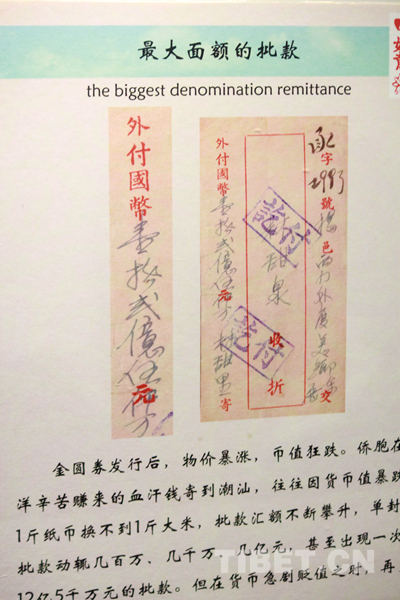 最大面额的批款
the biggest denomination remittance
外付國幣壹拾貳億伍仟万元
外付國幣壹拾貳億伍仟万元 寄
收折
付訖
付訖
字2993號 邑 外 交
金圆券发行后，物价暴涨，币值狂跌。侨胞在
洋辛苦赚来的血汗钱寄到潮汕，往往因货币值暴跌
1斤纸币换不到1斤大米，批款汇额不断攀升，单封
批款动辄几百万、几千万、几亿元，甚至出现一次
12亿5千万元的批款。但在货币急剧贬值之时，再
TIBET.CN